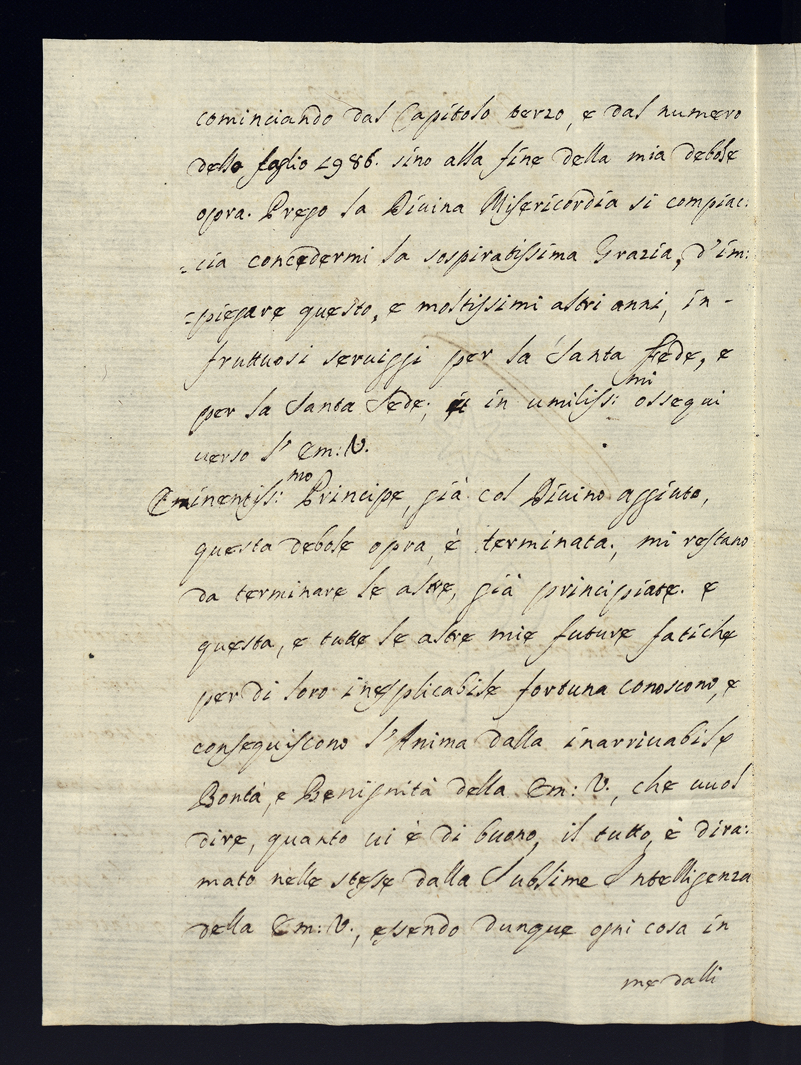 cominciando dal Capitolo terzo, e dal numero
dello foglio 1986. sino alla fine della mia debole
opra. Prego la Divina Misericordia si compiac:
=cia concedermi la sospiratissima Grazia, d'im:
=piegare questo, e moltissimi altri anni, in -
fruttuosi serviggi per la Santa Fede, e
per la Santa Sede; in umiliss:mi ossequi
verso l' Em: V.
Eminentiss:mo Principe, già col Divino aggiuto,
questa debole opra, è terminata., mi restano
da terminare le altre, già principiate. e
questa, e tutte le altre mie future fatiche
per di loro inesplicabile fortuna conoscono, e
conseguiscono l'Anima dalla inarrivabile
Bontà, e Benignità della Em: V., che vuol
dire, quanto vi è di buono, il tutto, è dira:
mato nelle stesse dalla Sublime Intelligenza
della Em: V., essendo dunque ogni cosa in
me dalli